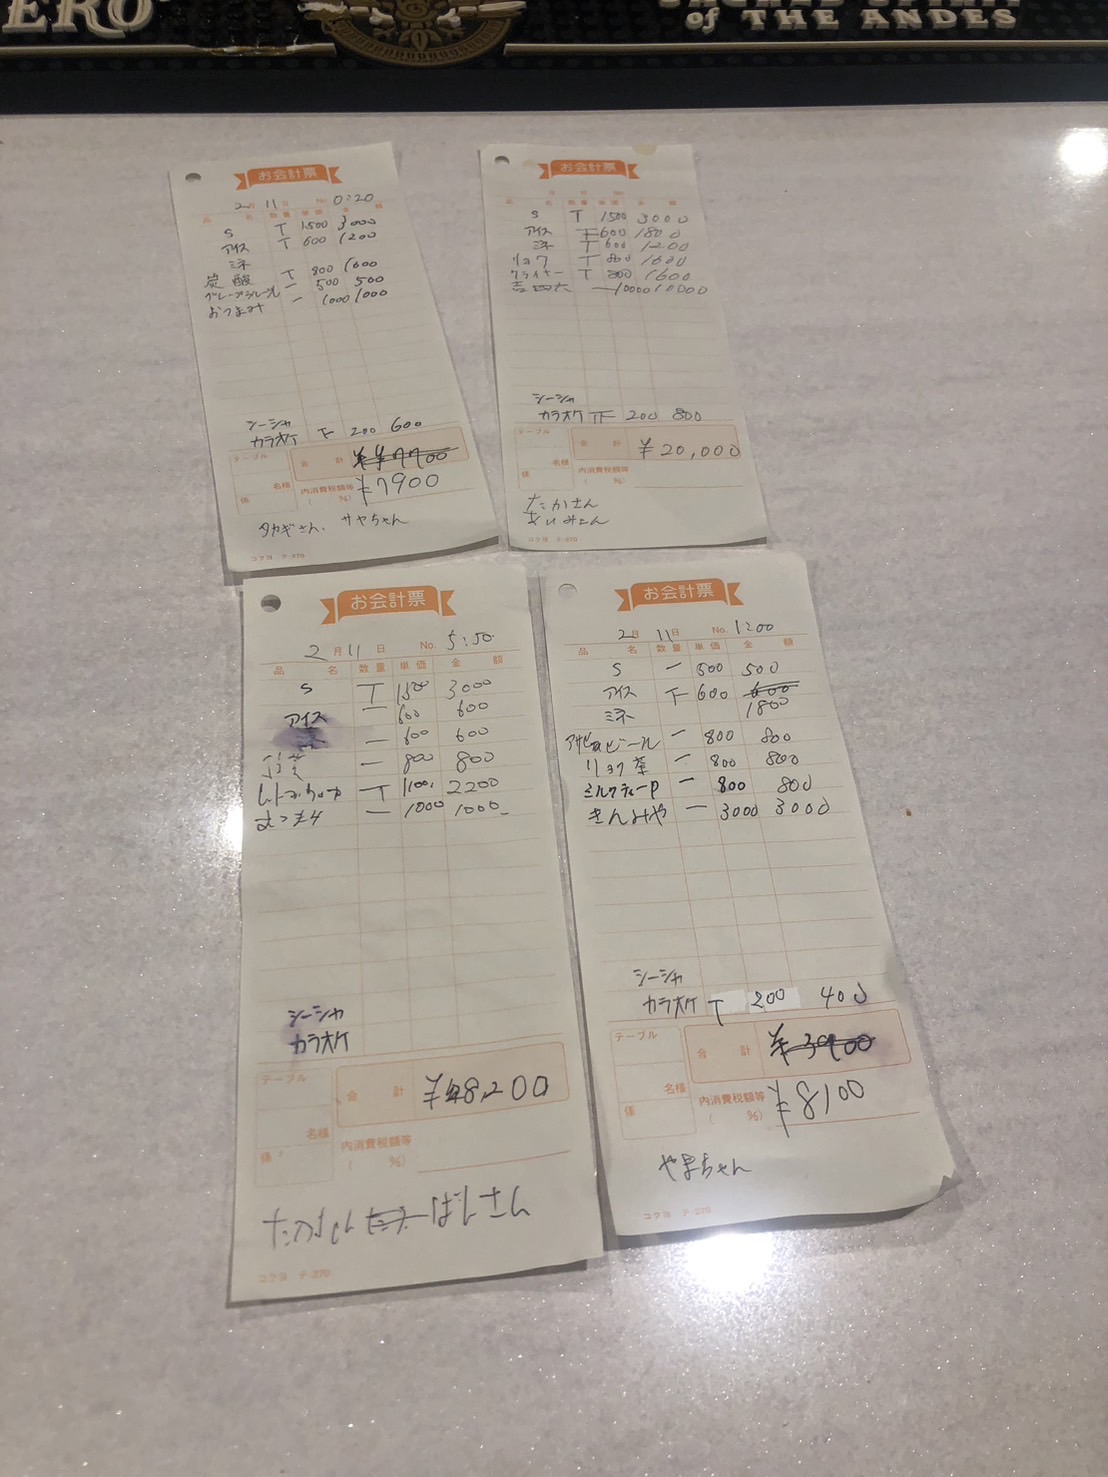 ERO
SACRED SPIRIT
of THE ANDES
お会計票
2月 11日 No. 0:20
品 名 数量 単価 金 額
S T 1500 3000
アイス T 600 1200
ミネ
炭酸 T 800 1600
グレープフルーツ 一 500 500
おつまみ 一 1000 1000
シーシャ
カラオケ 下 200 600
テーブル
合 計 ¥7700
名様
係
内消費税額等
( %)
¥7900
タカギさん、サヤちゃん
コクヨ テ-270
お会計票
月 日 No.
品 名 数量 単価 金 額
S T 1500 3000
アイス 下 600 1800
ミネ T 600 1200
リョク T 800 1600
クライナー T 800 1600
吉四六 一 10000 10000
シーシャ
カラオケ 正 200 800
テーブル
合 計 ¥20,000
名様
係
内消費税額等
( %)
たかさん
コクヨ テ-270
お会計票
2月 11日 No. 5:50
品 名 数量 単価 金 額
S T 1500 3000
アイス 一 600 600
一 600 600
一 800 800
T 1100 2200
おつまみ 一 1000 1000
シーシャ
カラオケ
テーブル
合 計 ¥8,200
名様
係
内消費税額等
( %)
ばしさん
コクヨ テ-270
お会計票
2月 11日 No. 1:00
品 名 数量 単価 金 額
S 一 500 500
アイス 下 600 600
1800
ミネ
アサヒビール 一 800 800
リョク茶 一 800 800
ミルクティーP 一 800 800
きんみや 一 3000 3000
シーシャ
カラオケ T 200 400
テーブル
合 計 ¥3900
名様
係
内消費税額等
( %)
¥8100
やまちゃん
コクヨ テ-270